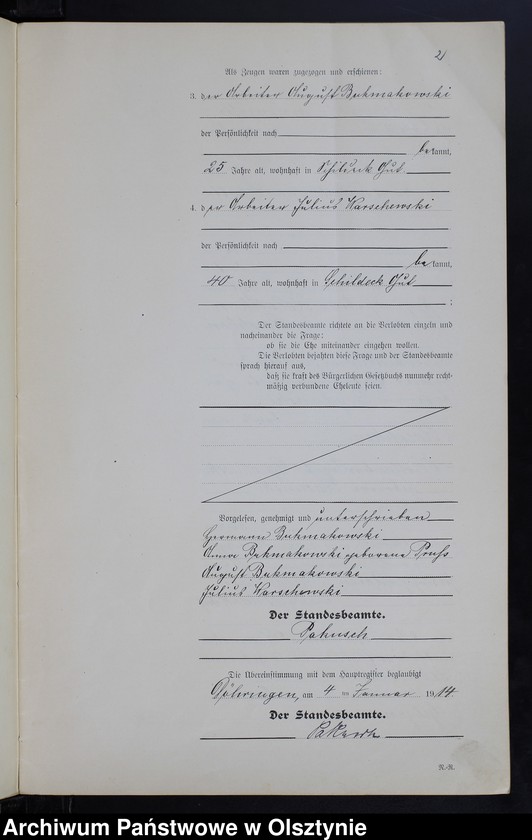 2
Als Zeugen waren zugezogen und erschienen:
3. der Arbeiter August Bukmakowski
der Persönlichkeit nach
bekannt,
25 Jahre alt, wohnhaft in Schildeck Gut
4. der Arbeiter Julius Warschewski
der Persönlichkeit nach
bekannt,
40 Jahre alt, wohnhaft in Schildeck Gut
;
Der Standesbeamte richtete an die Verlobten einzeln und
nacheinander die Frage:
ob sie die Ehe miteinander eingehen wollen.
Die Verlobten bejahten diese Frage und der Standesbeamte
sprach hierauf aus,
daß sie kraft des Bürgerlichen Gesetzbuchs nunmehr recht-
mäßig verbundene Eheleute seien.
Vorgelesen, genehmigt und unterschrieben
Hermann Bukmakowski
Anna Bukmakowski geborene
August Bukmakowski
Julius Warschewski
Der Standesbeamte.
Die Übereinstimmung mit dem Hauptregister beglaubigt
Döhringen, am 4 ten Januar 1914
Der Standesbeamte.
R.-R.
Archiwum Państwowe w Olsztynie